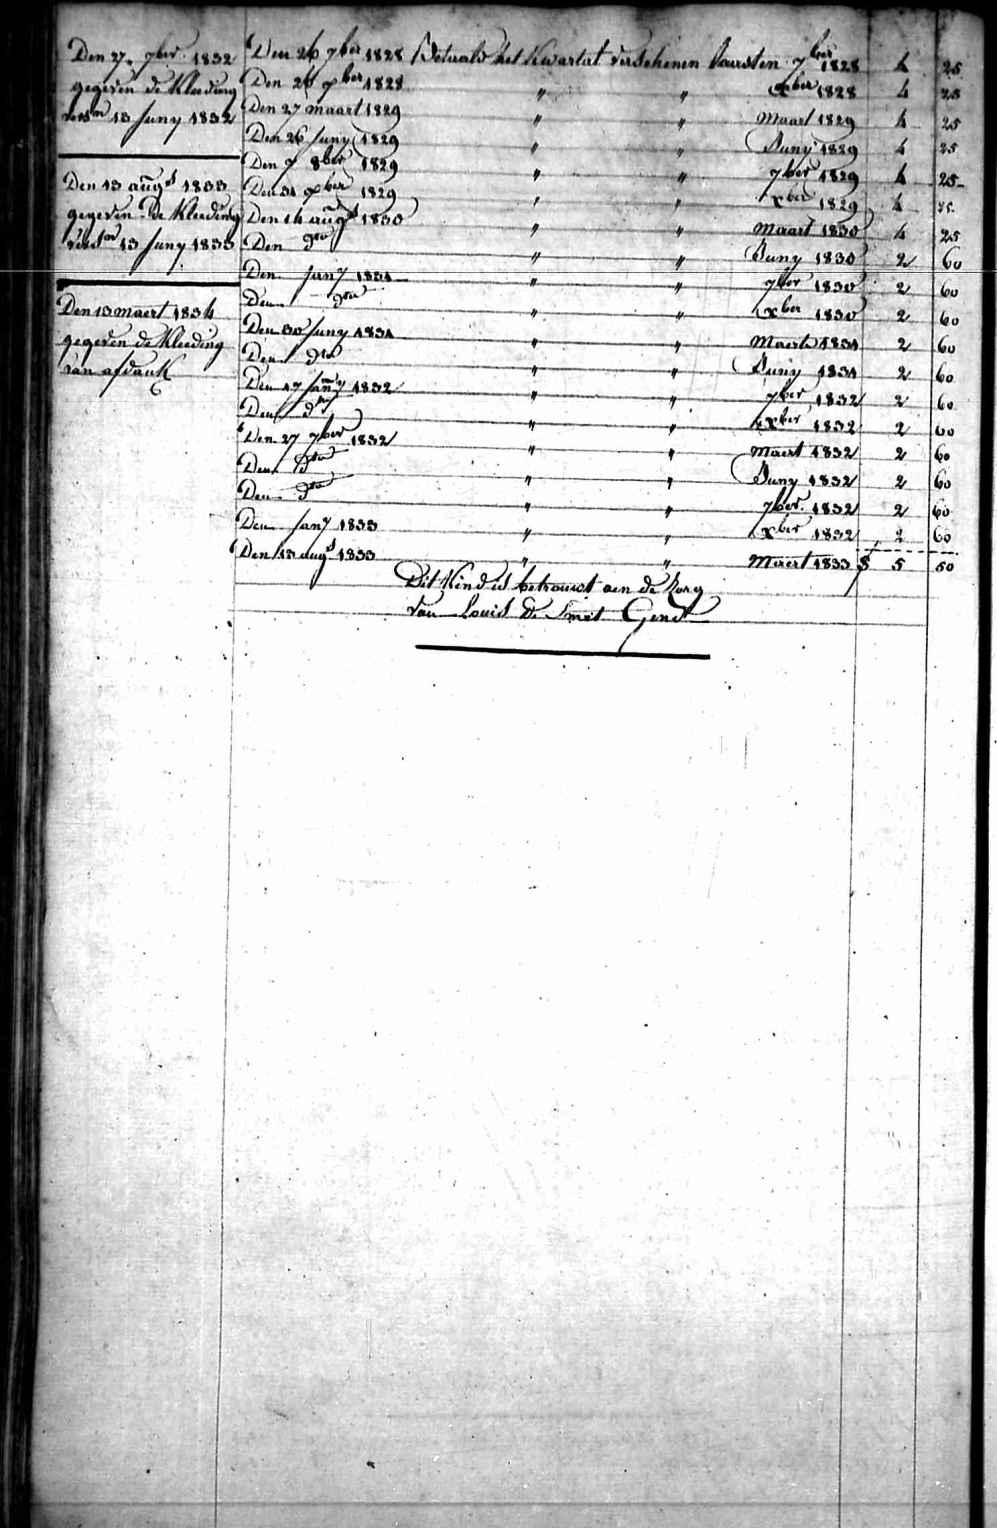 Den 27. 7ber 1832
gegeven de Kleeding
13 Juny 1832
Den 13 augs 1833
gegeven de Kleeding
13 Juny 1833
Den 13 maert 1834
gegeven de Kleeding
van afdank
Den 26 7ber 1828 Betaald het Kwartal verschenen 7ber 1828 4 25
Den 26 xber 1828 " " xber 1828 4 25
Den 27 maart 1829 " " Maart 1829 4 25
Den 26 Juny 1829 " " Juny 1829 4 25
Den 7 8ber 1829 " " 7ber 1829 4 25
Den 31 xber 1829 " " xber 1829 4 25
Den 14 augs 1830 " " maart 1830 4 25
Den dto " " Juny 1830 2 60
Den Jany 1831 " " 7ber 1830 2 60
Den dto " " xber 1830 2 60
Den 30 Juny 1831 " " Maert 1831 2 60
Den dto " " Juny 1831 2 60
Den 17 Jany 1832 " " 7ber 1832 2 60
Den dto " " xber 1832 2 60
Den 27 7ber 1832 " " Maert 1832 2 60
Den dto " " Juny 1832 2 60
Den dto " " 7ber 1832 2 60
Den Jany 1833 " " xber 1832 2 60
Den 13 augs 1833 " " Maert 1833 5 50
Dit Kind is betrouwt aen de Zorg
van Louis De Smet Gend